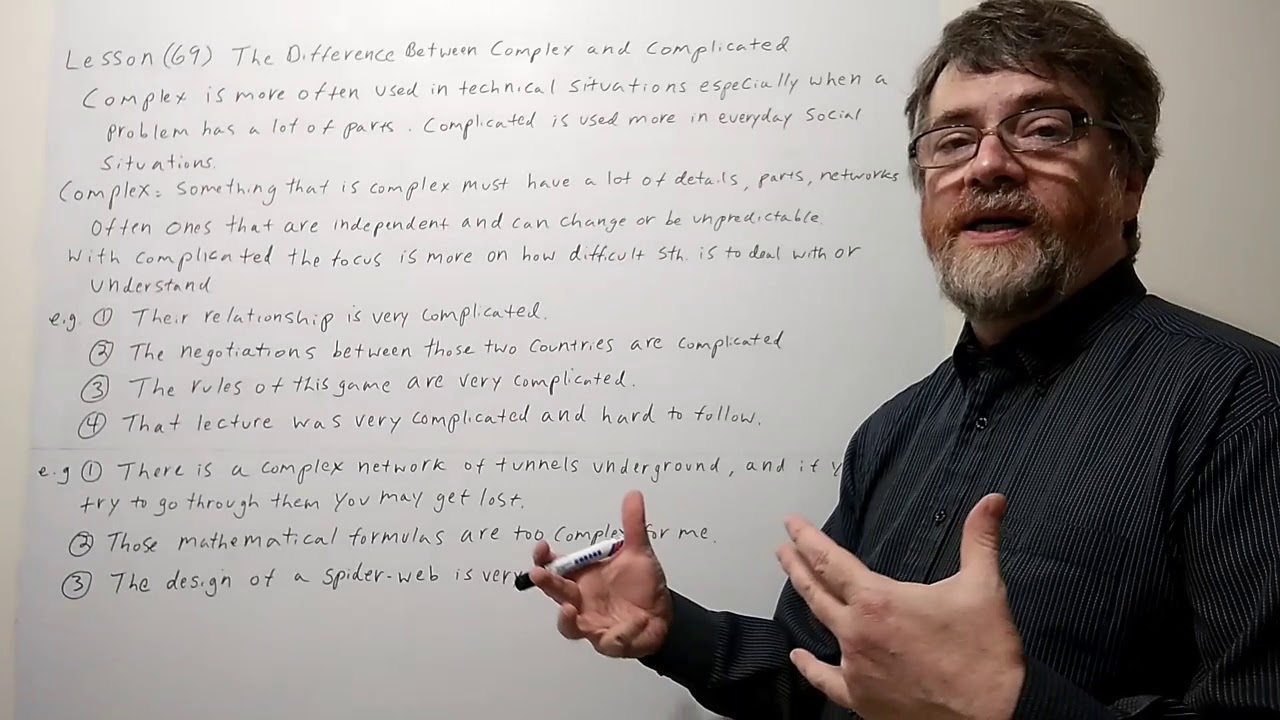 Lesson (69) The Difference Between Complex and Complicated
Complex is more often used in technical situations especially when a
problem has a lot of parts. Complicated is used more in everyday social
situations.
Complex: Something that is complex must have a lot of details, parts, networks
Often ones that are independent and can change or be unpredictable.
With complicated the focus is more on how difficult sth. is to deal with or
understand
e.g. ① Their relationship is very complicated.
② The negotiations between those two countries are complicated
③ The rules of this game are very complicated.
④ That lecture was very complicated and hard to follow.
e.g ① There is a complex network of tunnels underground, and if
try to go through them you may get lost.
② Those mathematical formulas are too complex for me.
③ The design of a spider-web is very